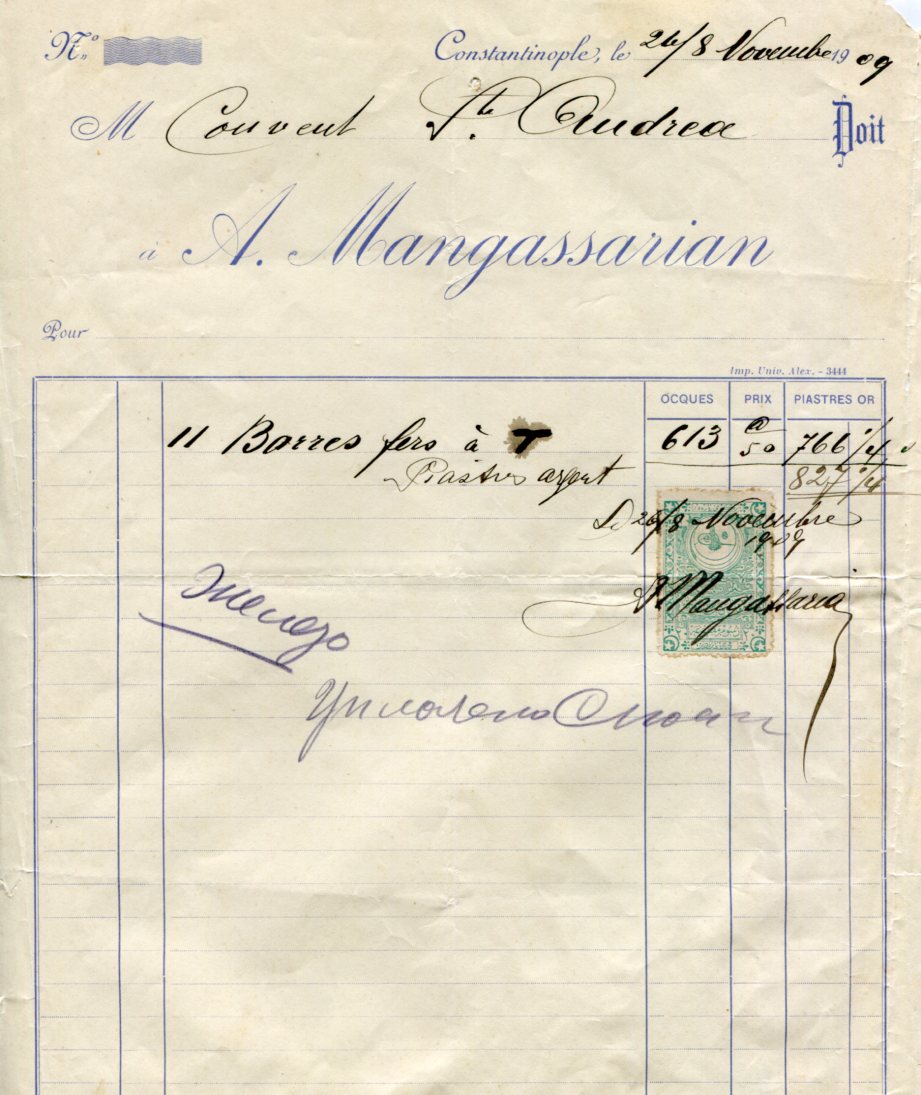 Nº Constantinople, le 26/8 Novembre 1909
M Couvent Ste. Andrea Doit
à A. Mangassarian
Pour
Imp. Univ. Alex. - 3444
OCQUES PRIX PIASTRES OR
11 Barres fers à T 613 @ 50 766 1/4
Piastres argent 827 1/4
26/8 Novembre
1909
A. Mangassarian